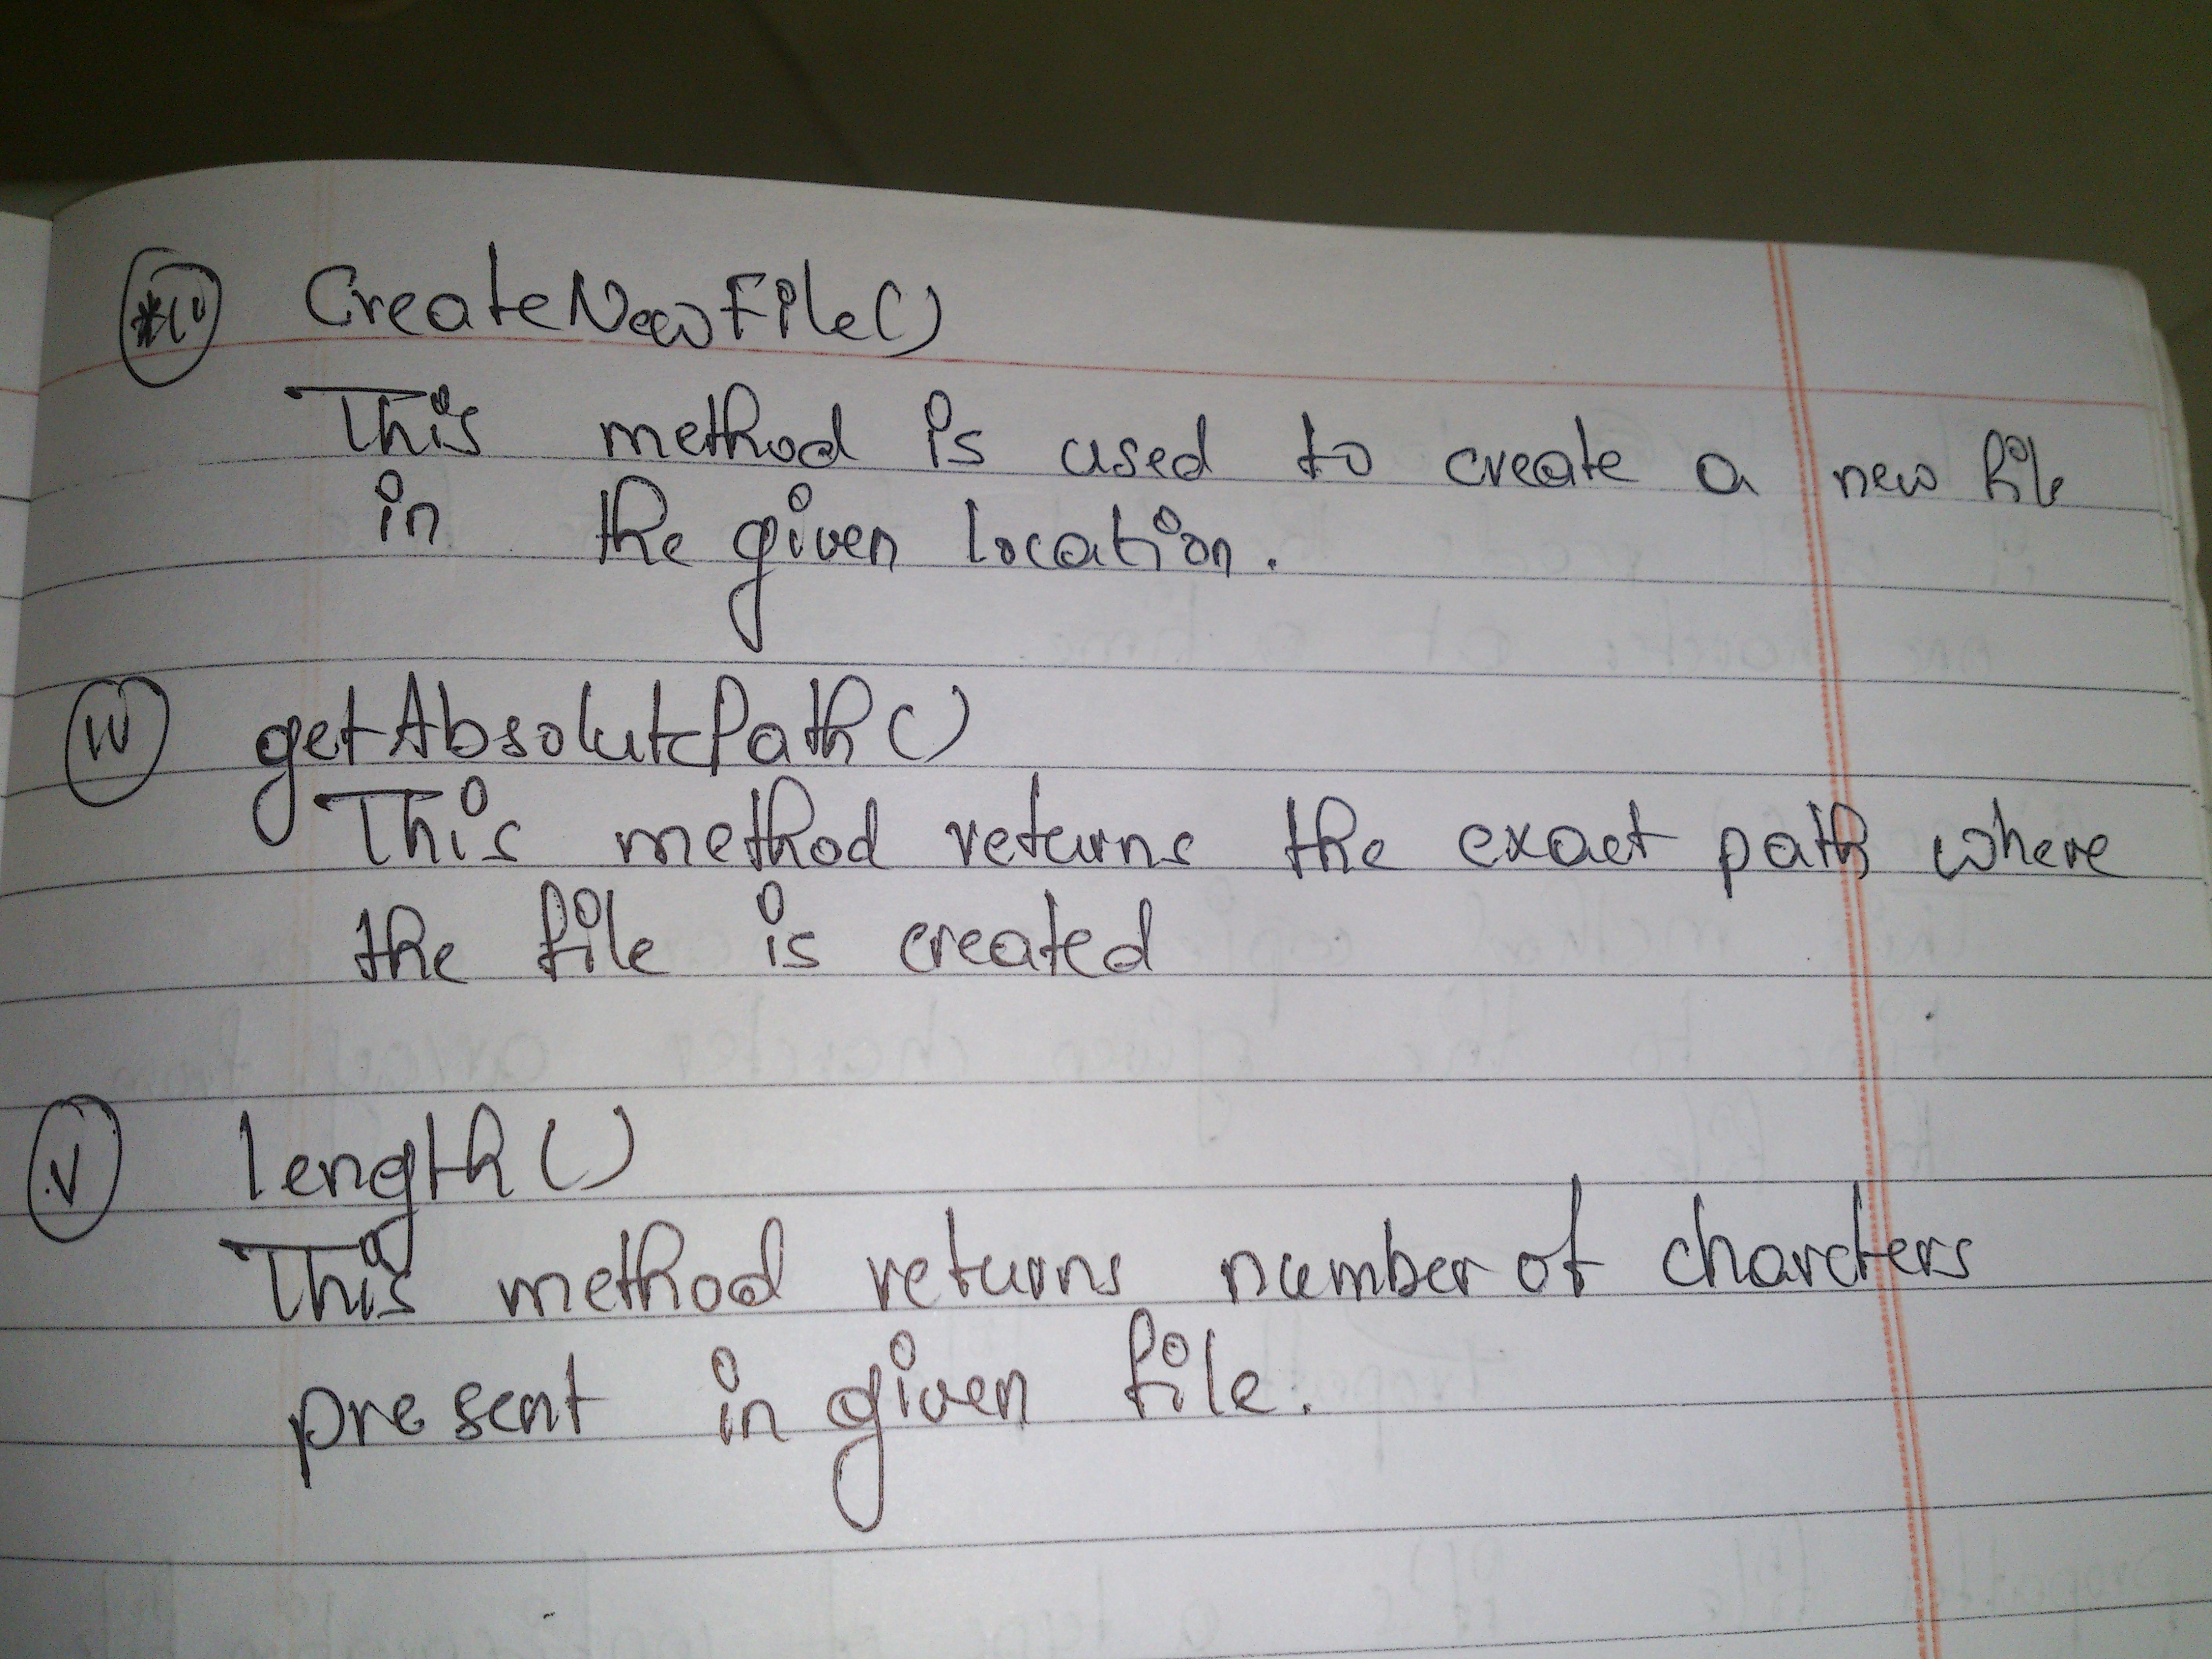 CreateNewFile()
This method is used to create a new file
in the given location.
getAbsolutePath()
This method returns the exact path where
the file is created
V length()
This method returns number of charcters
present in given file.